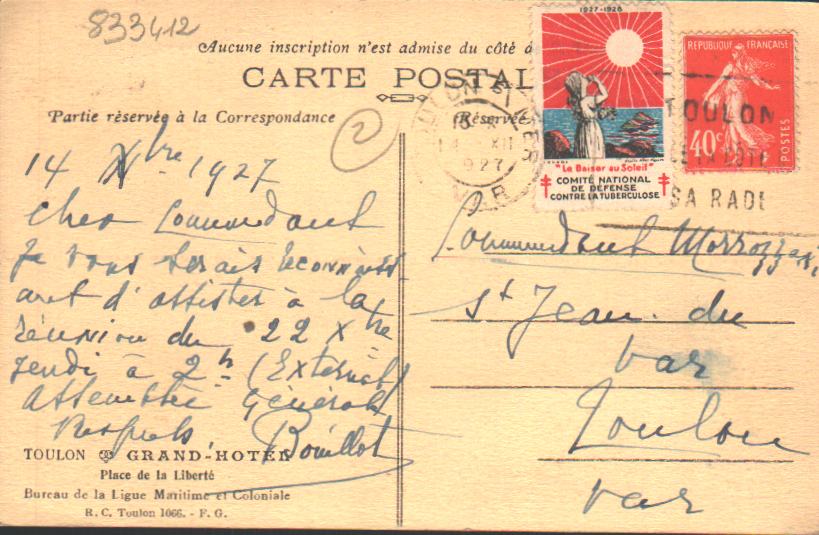 833412
Aucune inscription n'est admise du côté d
CARTE POSTAL
Partie réservée à la Correspondance
Réservée
2
14 Xbre 1927
Cher Commandant
Je vous serais reconnaiss
ant d'assister à la
réunion du 22 Xbre
jeudi à 2h (Externat)
Assemblée Générale
Respects, Bouillot
TOULON GRAND-HOTEL
Place de la Liberté
Bureau de la Ligue Maritime et Coloniale
R. C. Toulon 1066. - F. G.
1927-1928
"Le Baiser au Soleil"
COMITÉ NATIONAL
DE DEFENSE
CONTRE LA TUBERCULOSE
REPUBLIQUE FRANÇAISE
40c
POSTES
TOULON
SA RADE
14 XII
927
VAR
Commandant
St Jean du
Var
Toulon
Var